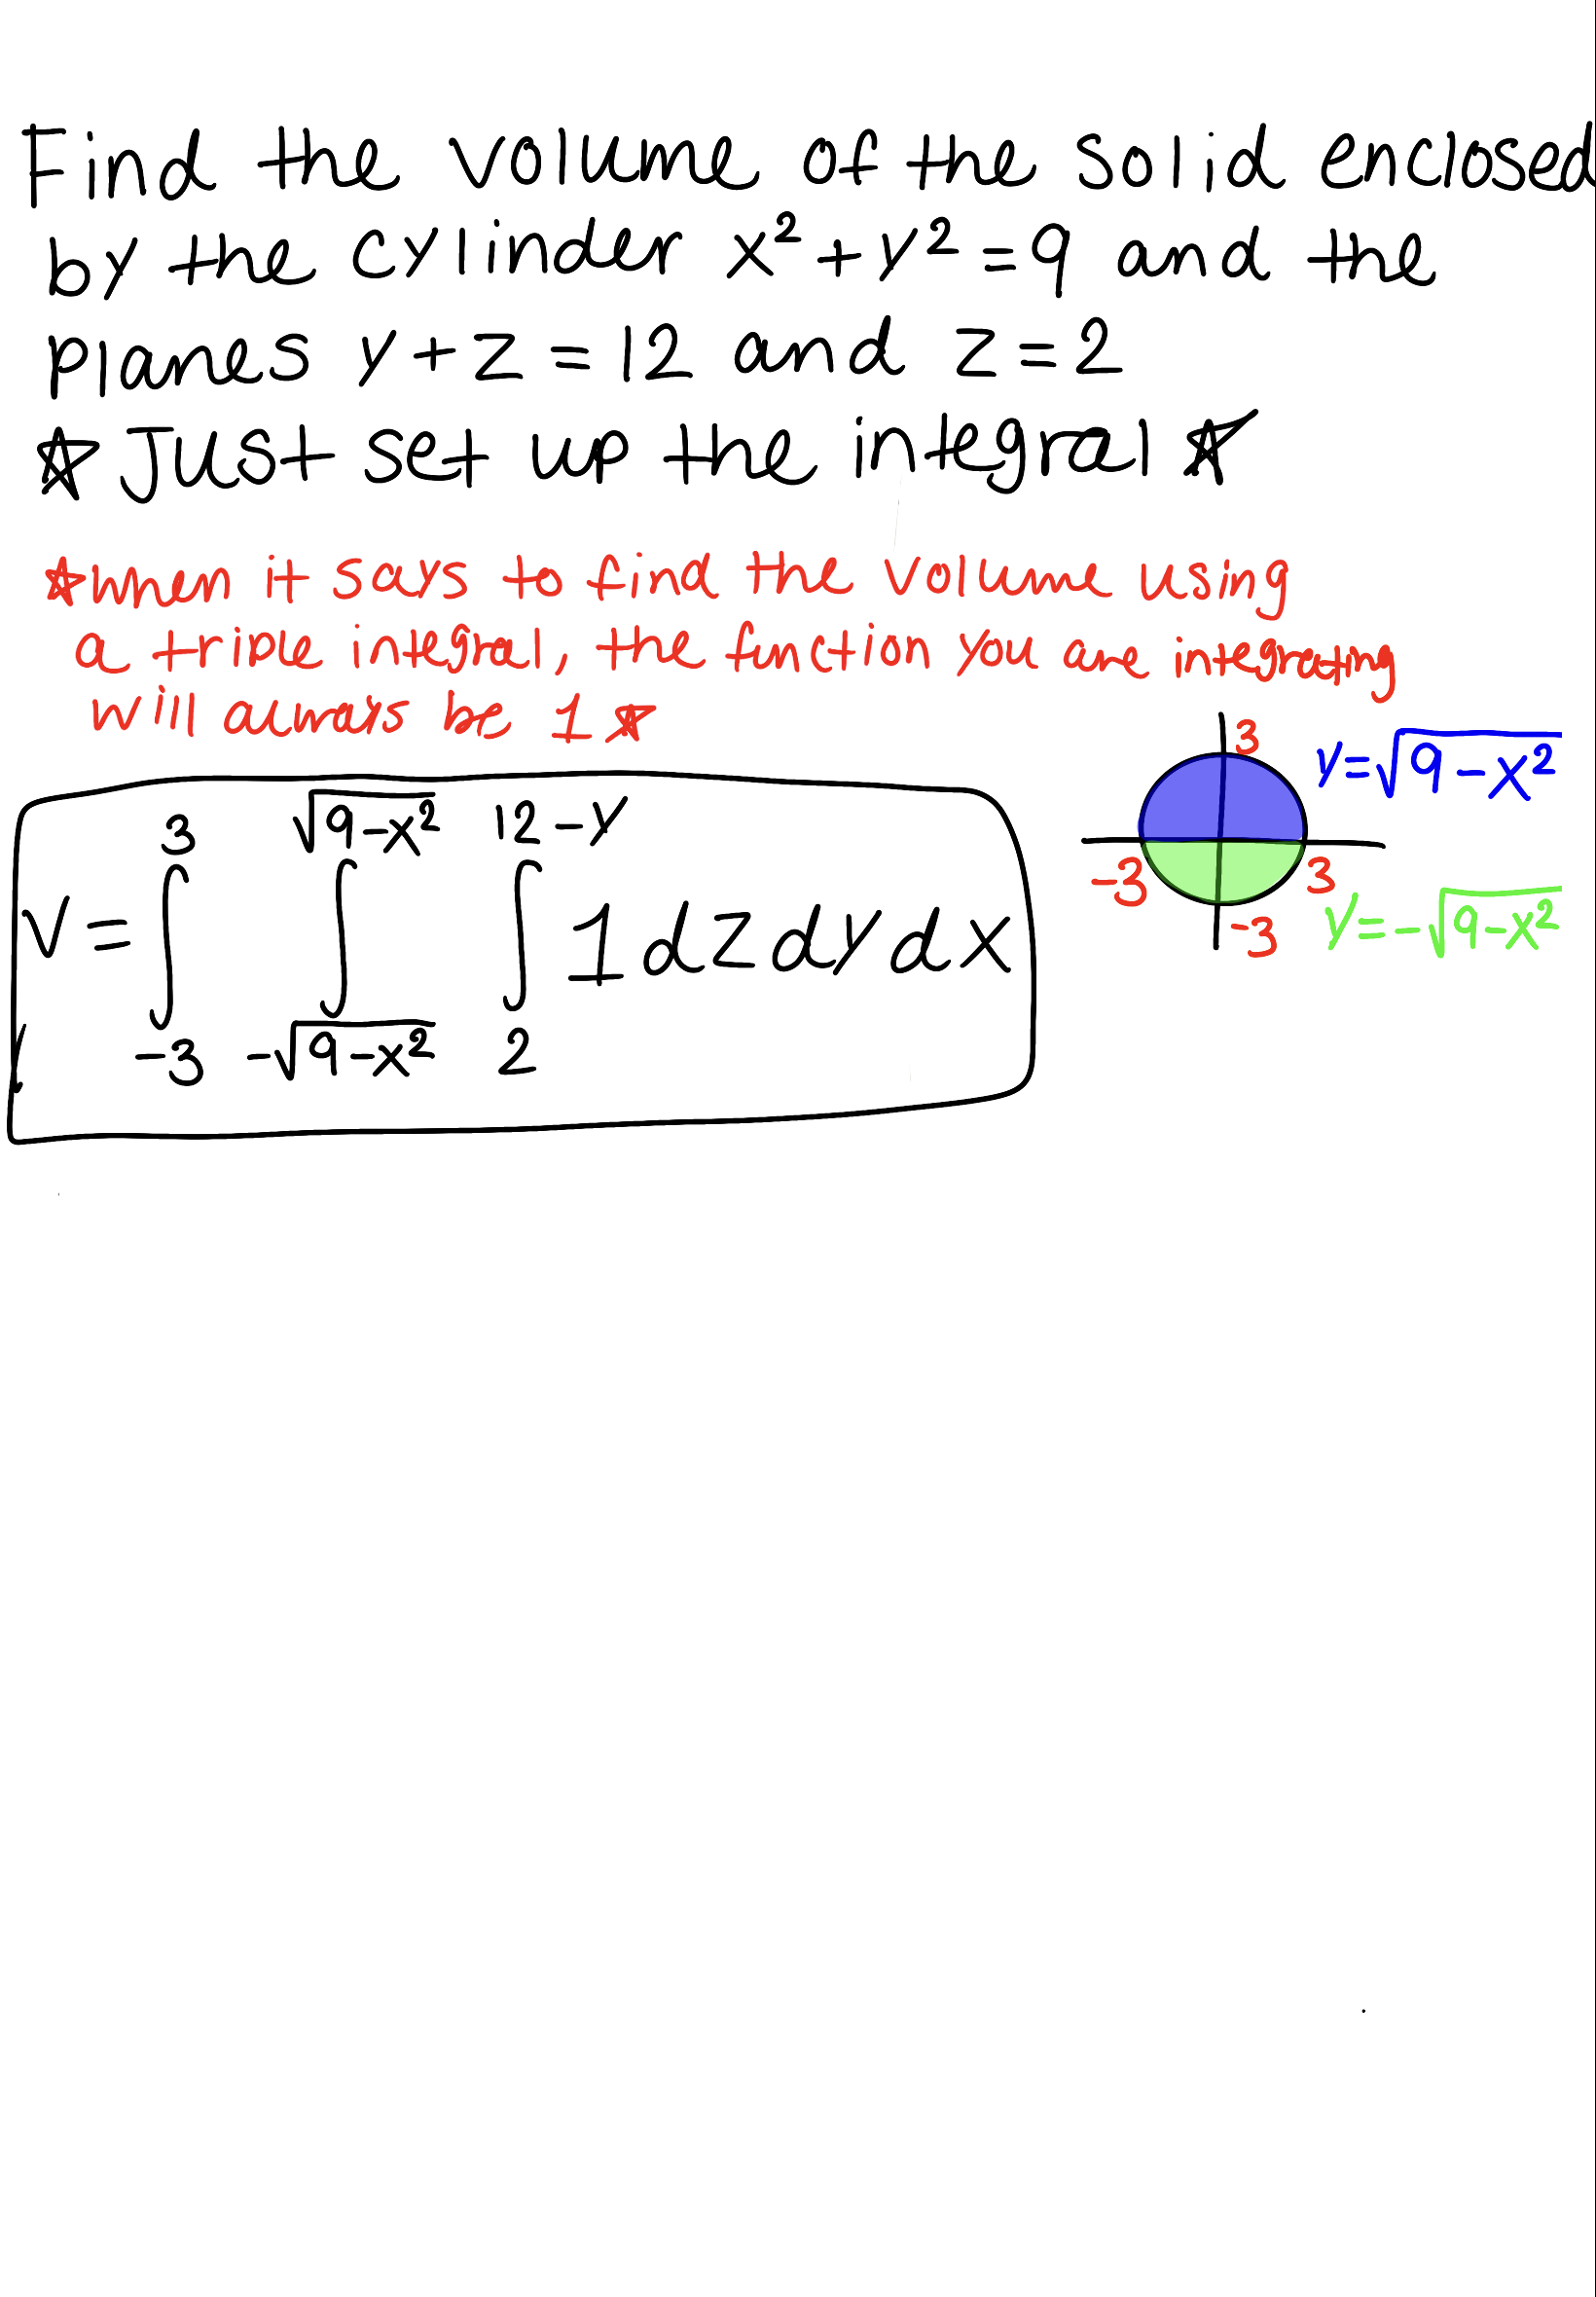 Find the volume of the solid enclosed
by the cylinder x² + y² = 9 and the
planes y + z = 12 and z = 2
☆ Just set up the integral ☆
☆ when it says to find the volume using
a triple integral, the function you are integrating
will always be 1 ☆
3
y = √(9 - x²)
-3
3
-3
y = -√(9 - x²)
3 √(9-x²) 12-y
V = ∫ ∫ ∫ 1 dz dy dx
-3 -√(9-x²) 2